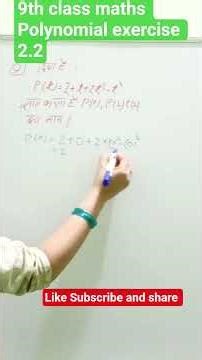 9th class maths
Polynomial exercise
2.2
दिया है
P(t)=2+t+2t²-t³
मान P(0), P(1), P(2)
का मान।
P(0)=2+0+2×
=2
Like Subscribe and share